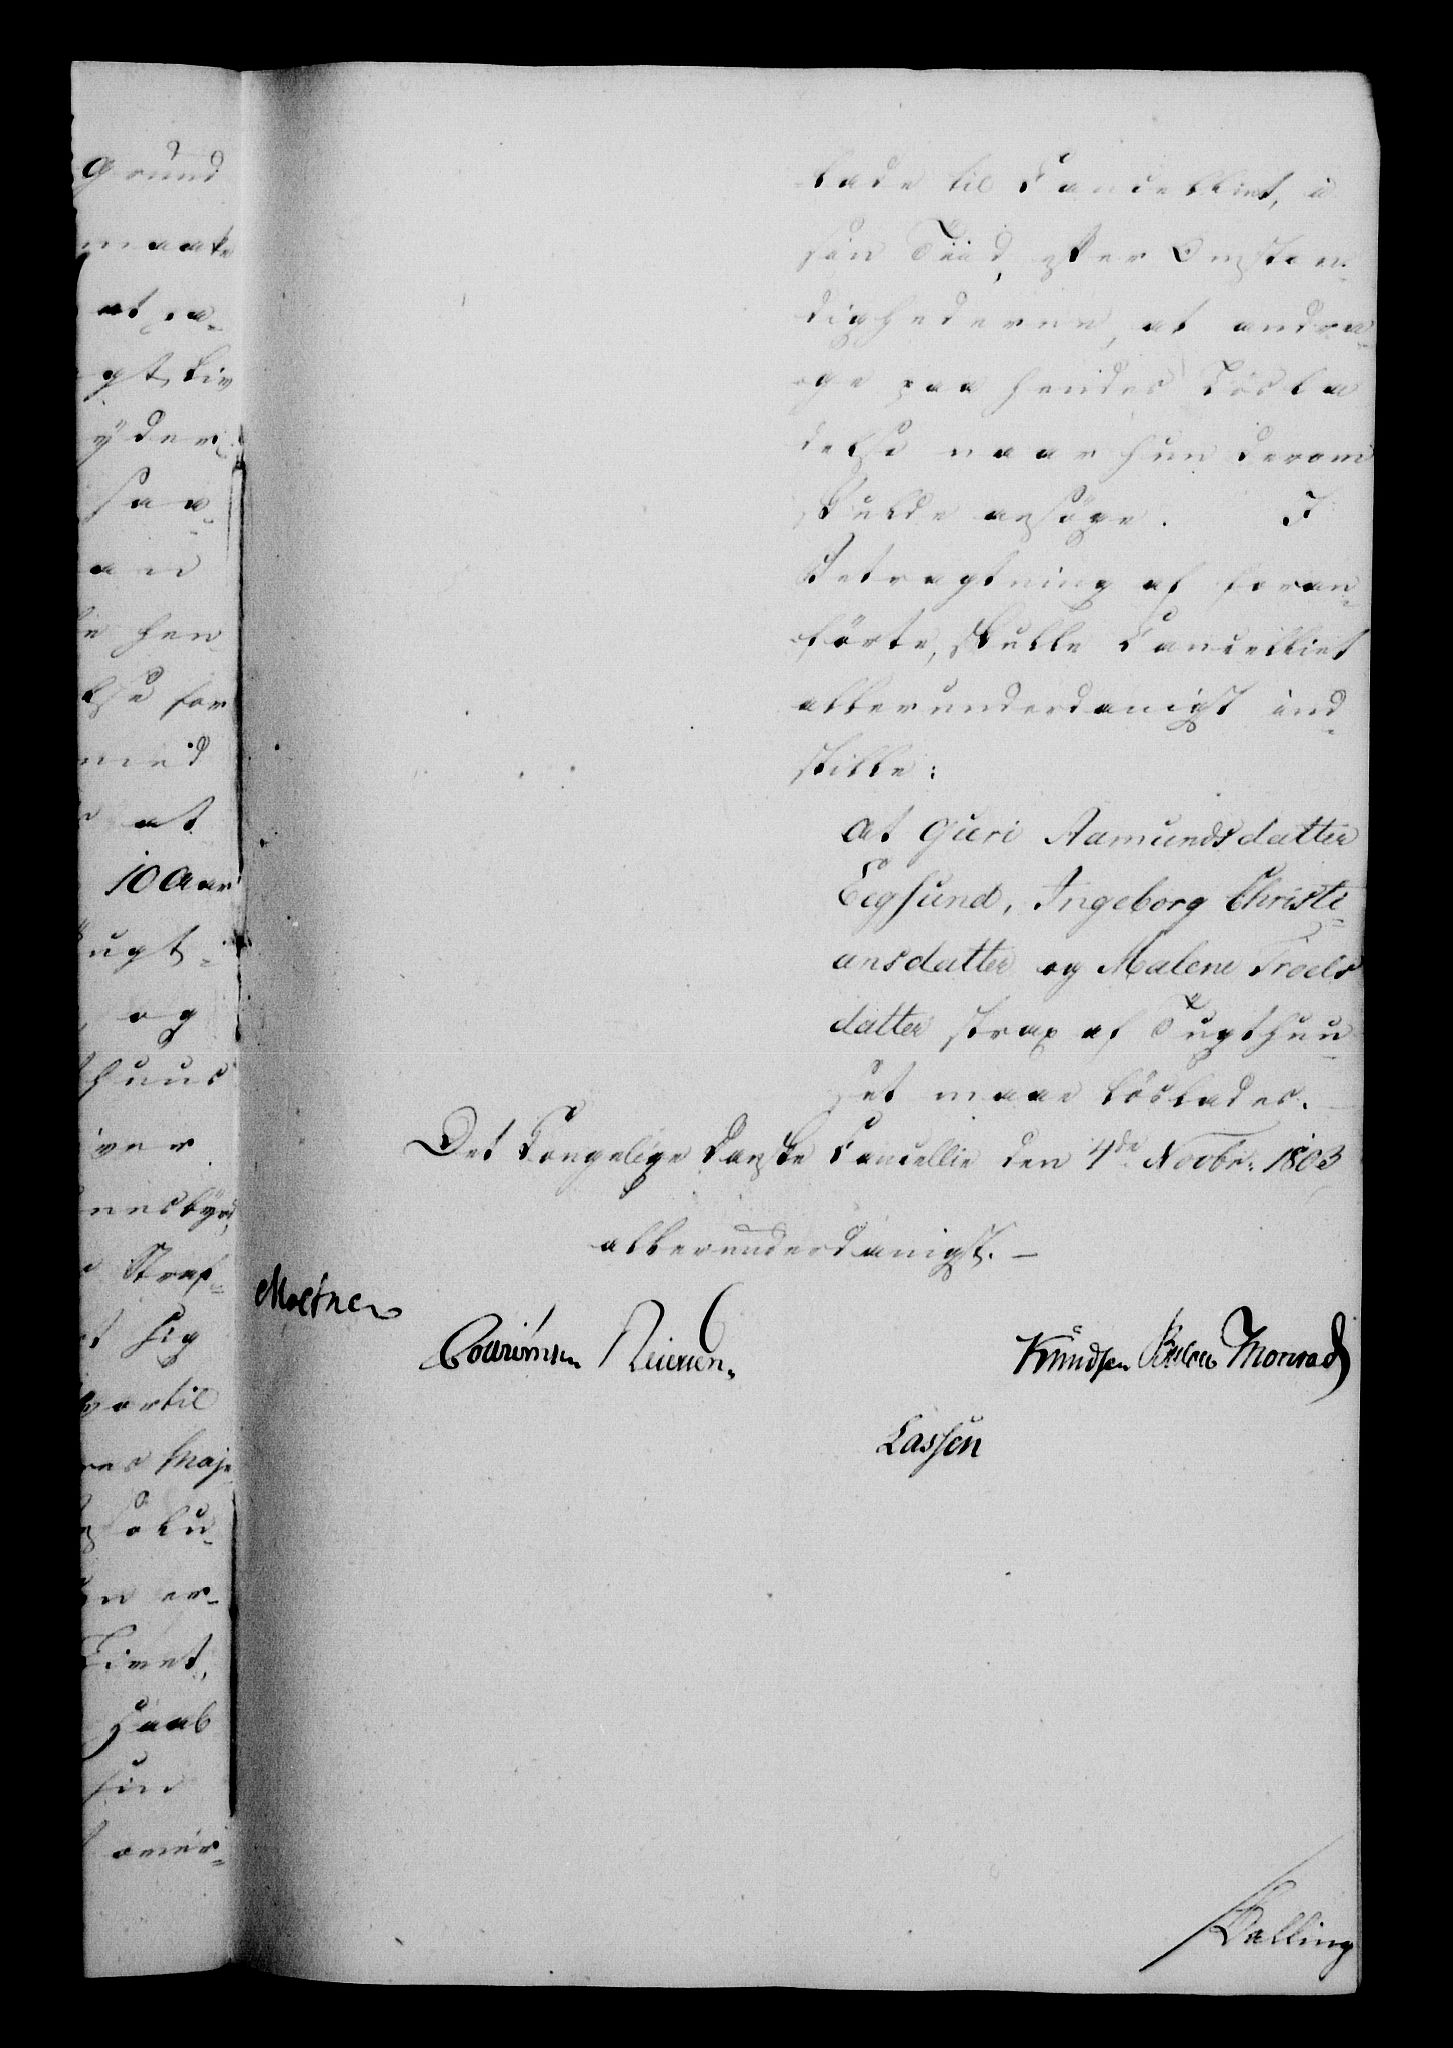 Grund
maate
at pa-
gt, Liv
yder-
saa-
and
hen
else for
med
at
10 Aar
ugt-
og
thuus
iver
nesbyrd,
Straf-
sig
hvortil
res Maje
solu-
er-
Livet,
Haab
sin
omer-
lade til Cancelliet, i
sin Tiid, efter Omstæn-
dighederne, at andra-
ge paa hendes Løsla
delse naar hun derom
skulde ansøge. I
Betragtning af foran-
førte, skulle Cancelliet
allerunderdanigst ind-
stille:
at Guri Aamundsdatter
Eegsund, Ingeborg Christi-
ansdatter og Malene Troels
datter strax af Tugthuu-
set maae løslades.
Det Kongelige Danske Cancellie den 4de Novbr. 1803
allerunderdanigst. —
Moltner
Cold Ørnsen Reiersen.
Knudsen Bülow Monrad
Lassen
Dalling